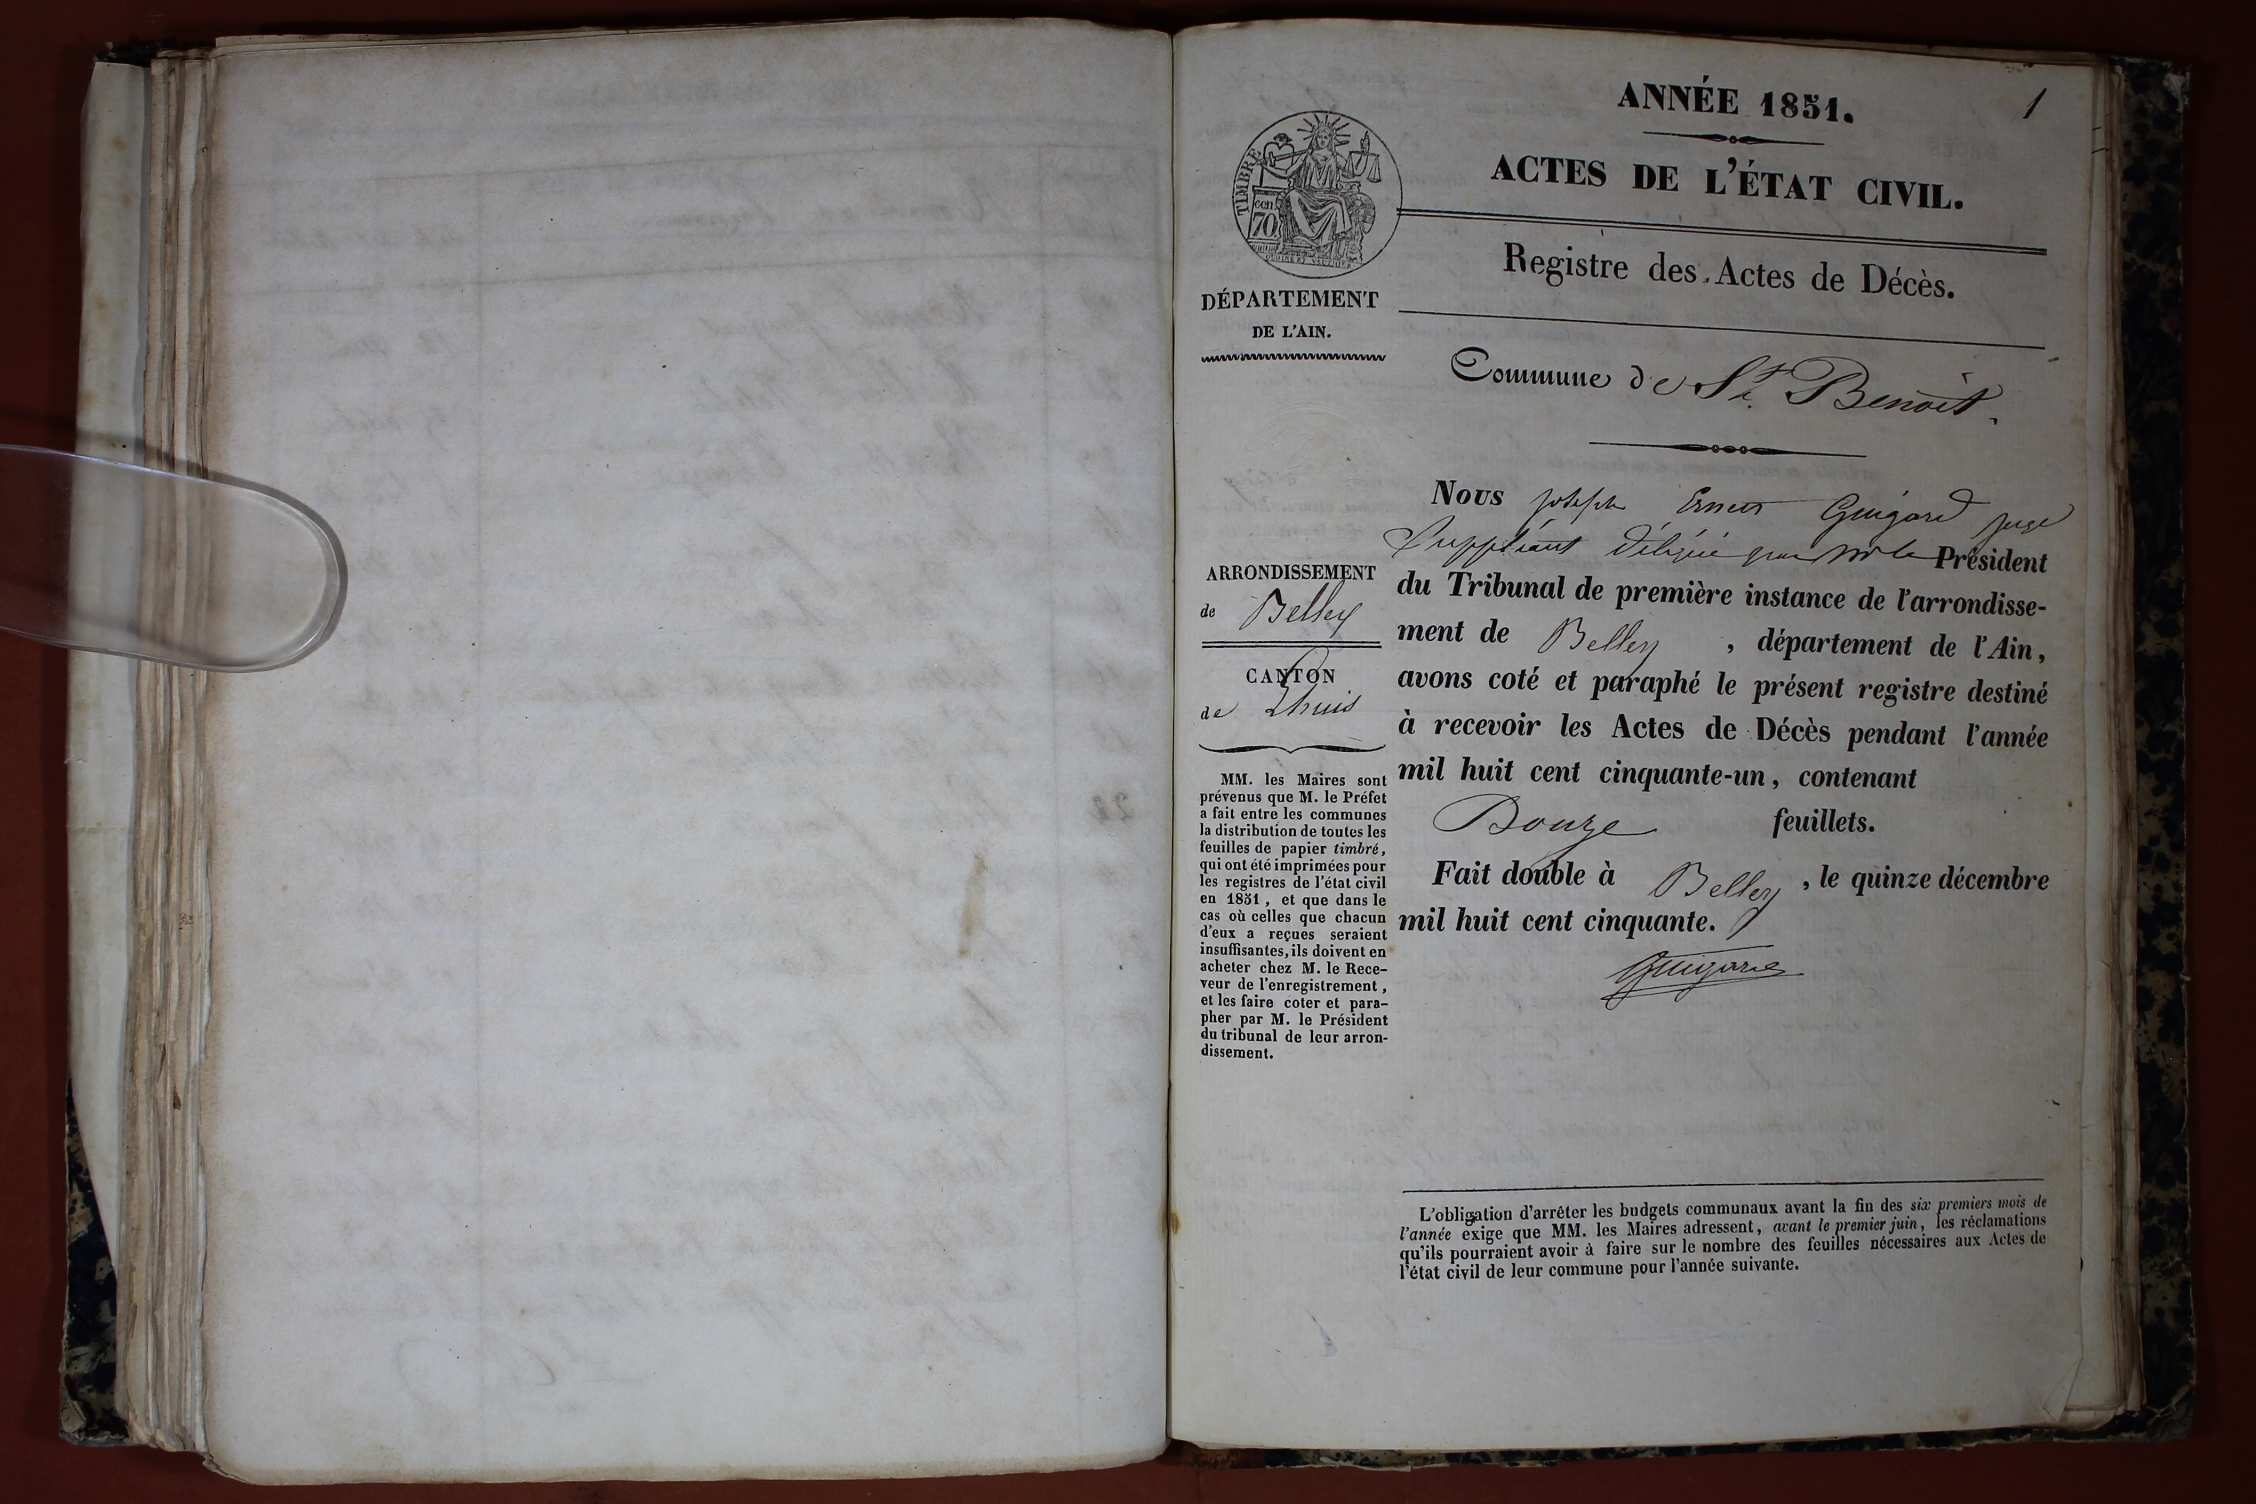 ANNÉE 1851.
1
ACTES DE L'ÉTAT CIVIL.
Registre des Actes de Décès.
TIMBRE
cen
70
DÉPARTEMENT
DE L'AIN.
Commune de St. Benoît.
ARRONDISSEMENT
de Belley
CANTON
de Lhuis
MM. les Maires sont
prévenus que M. le Préfet
a fait entre les communes
la distribution de toutes les
feuilles de papier timbré,
qui ont été imprimées pour
les registres de l'état civil
en 1851, et que dans le
cas où celles que chacun
d'eux a reçues seraient
insuffisantes, ils doivent en
acheter chez M. le Rece-
veur de l'enregistrement,
et les faire coter et para-
pher par M. le Président
du tribunal de leur arron-
dissement.
Nous Joseph Ernest Guigard juge
Suppléant délégué par Mr le Président
du Tribunal de première instance de l'arrondisse-
ment de Belley, département de l'Ain,
avons coté et paraphé le présent registre destiné
à recevoir les Actes de Décès pendant l'année
mil huit cent cinquante-un, contenant
Douze feuillets.
Fait double à Belley, le quinze décembre
mil huit cent cinquante.
Guigard
L'obligation d'arrêter les budgets communaux avant la fin des six premiers mois de
l'année exige que MM. les Maires adressent, avant le premier juin, les réclamations
qu'ils pourraient avoir à faire sur le nombre des feuilles nécessaires aux Actes de
l'état civil de leur commune pour l'année suivante.